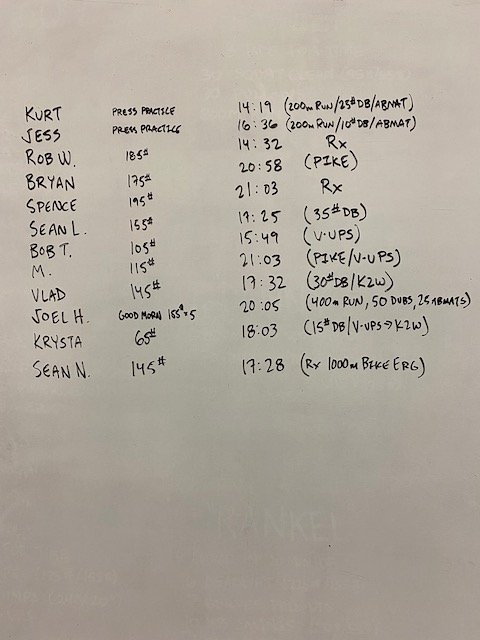 KURT PRESS PRACTICE 14:19 (200m RUN/25# DB/ABMAT)
JESS PRESS PRACTICE 16:36 (200m RUN/10# DB/ABMAT)
ROB W. 185# 14:32 Rx
BRYAN 175# 20:58 (PIKE)
SPENCE 195# 21:03 Rx
SEAN L. 155# 17:25 (35# DB)
BOB T. 105# 15:49 (V-UPS)
M. 115# 21:03 (PIKE/V-UPS)
VLAD 145# 17:32 (30# DB/K2W)
JOEL H. GOOD MORN 155# x 5 20:05 (400m RUN, 50 DUBS, 25 ABMATS)
KRYSTA 65# 18:03 (15# DB/V-UPS → K2W)
SEAN N. 145# 17:28 (Rx 1000m BIKE ERG)